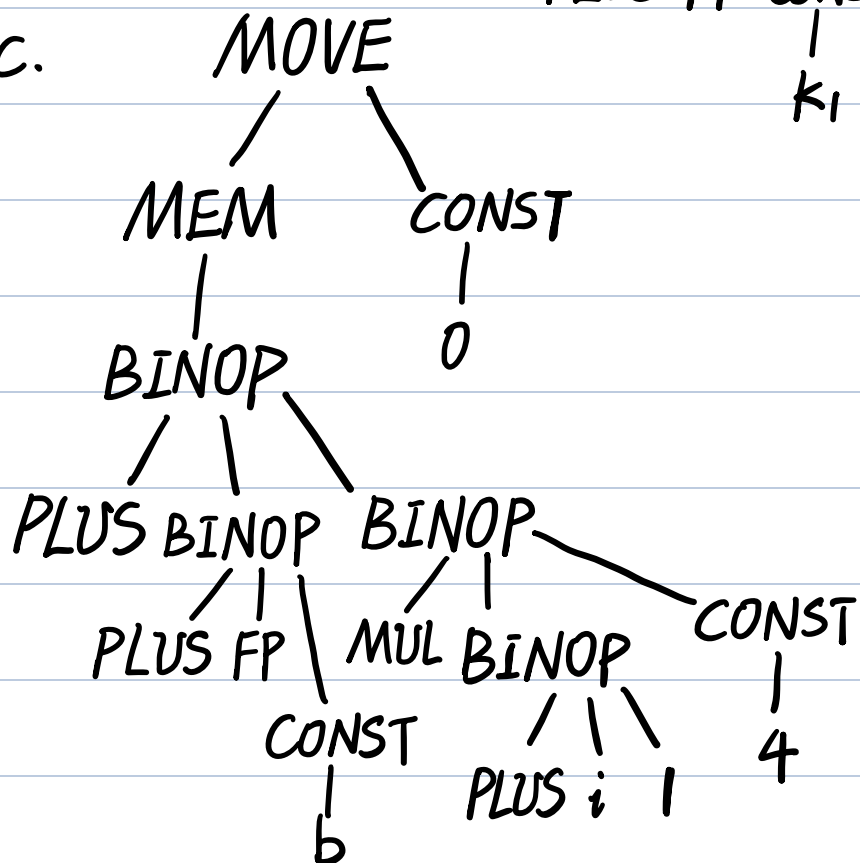 C. MOVE
K1
MEM CONST
0
BINOP
PLUS BINOP BINOP
PLUS FP MUL BINOP CONST
CONST 4
PLUS i 1
b